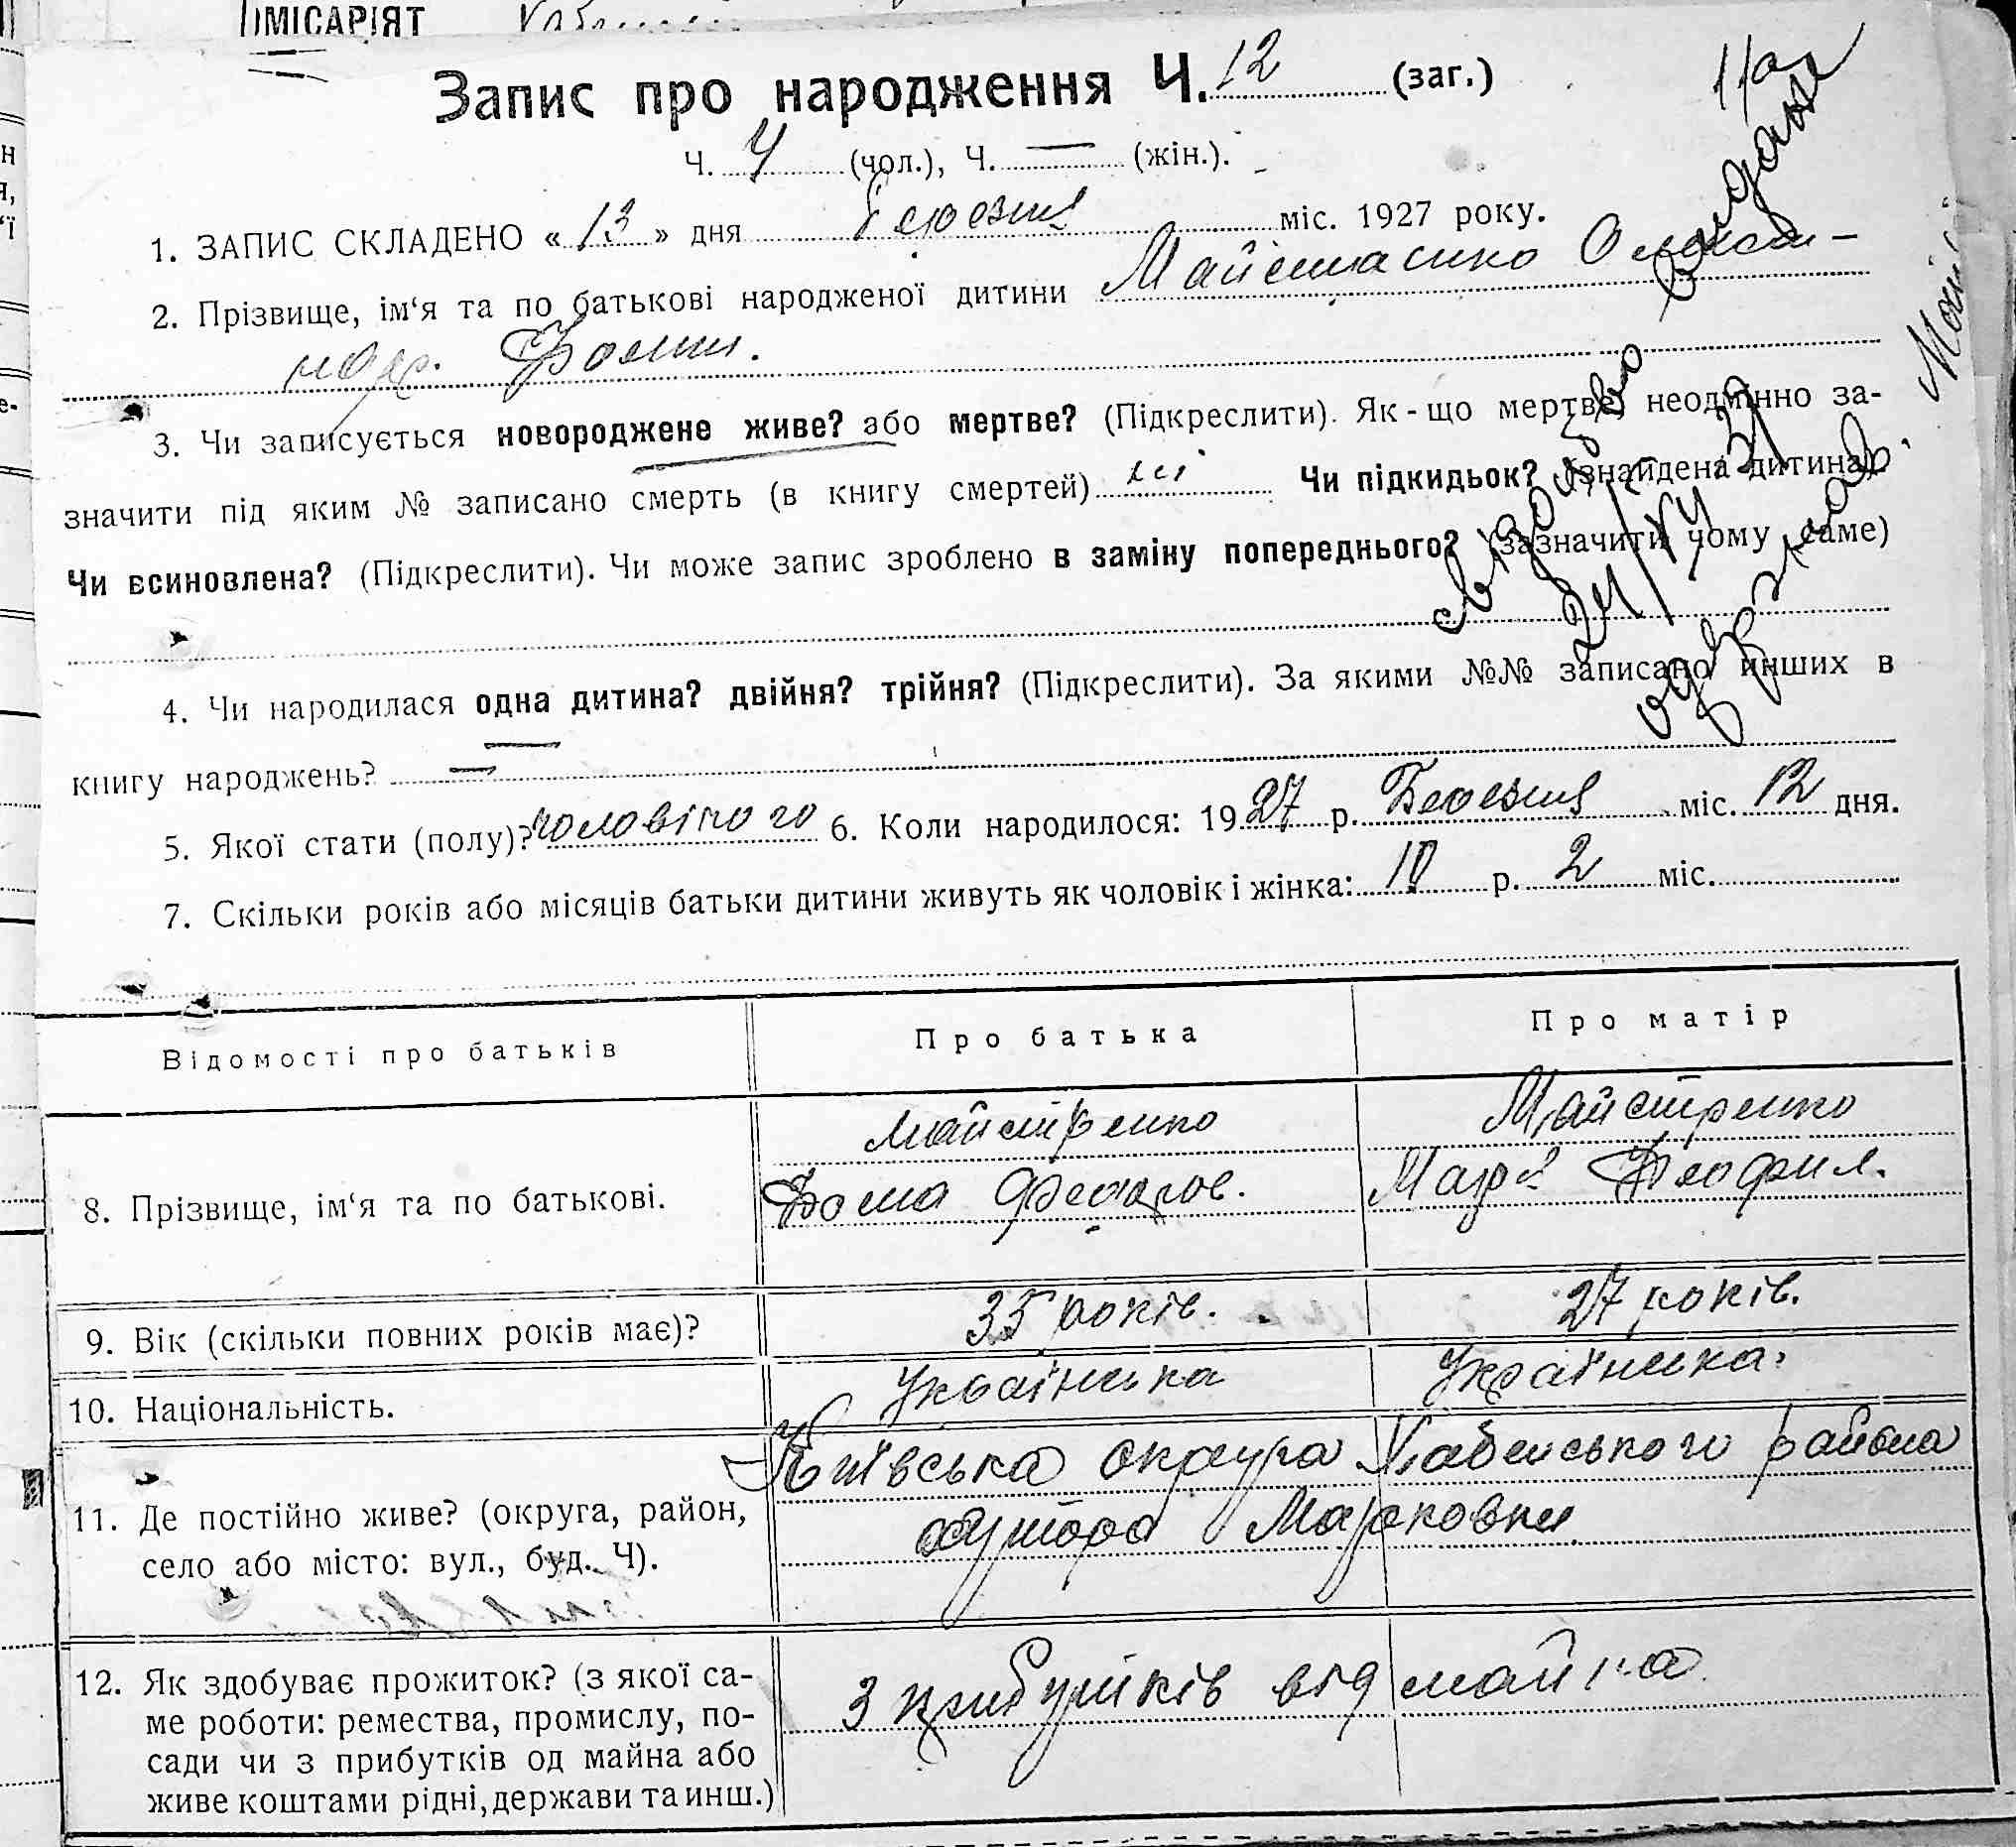 ОМІСАРІЯТ
Запис про народження Ч. 12 (заг.)
11а
Ч. 4 (чол.), Ч. — (жін.).
1. ЗАПИС СКЛАДЕНО « 13 » дня березня міс. 1927 року.
2. Прізвище, ім‘я та по батькові народженої дитини
Фомич.
3. Чи записується новороджене живе? або мертве? (Підкреслити). Як-що мертве, неодмінно за-
значити під яким № записано смерть (в книгу смертей) Чи підкидьок? (знайдена дитина).
Чи всиновлена? (Підкреслити). Чи може запис зроблено в заміну попереднього? (зазначити чому саме)
4. Чи народилася одна дитина? двійня? трійня? (Підкреслити). За якими №№ записано инших в
книгу народжень? —
5. Якої стати (полу)? чоловічого 6. Коли народилося: 1927 р. Березня міс. 12 дня.
7. Скільки років або місяців батьки дитини живуть як чоловік і жінка: 10 р. 2 міс.
Відомості про батьків Про батька Про матір
Майстренко Майстренко
8. Прізвище, ім‘я та по батькові. Фома Федоров. Марія Феофил.
9. Вік (скільки повних років має)? 35 років. 27 років.
10. Національність. Українська Українська.
Київська округа Хабенського района
11. Де постійно живе? (округа, район,
село або місто: вул., буд. Ч). хутора Марковки
12. Як здобуває прожиток? (з якої са-
ме роботи: ремества, промислу, по- З прибутків від майна
сади чи з прибутків од майна або
живе коштами рідні, держави та инш.)
свідоцтво видане
одержав.